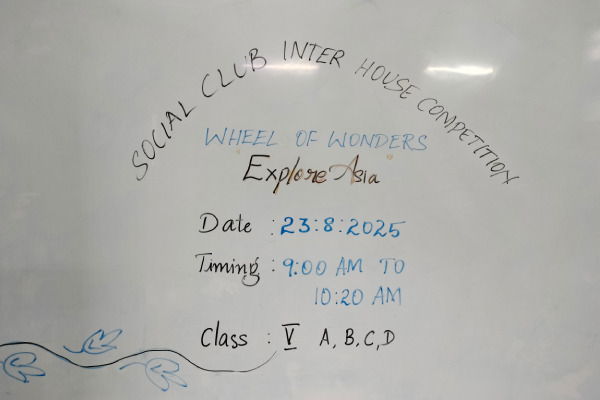 SOCIAL CLUB INTER HOUSE COMPETITION
WHEEL OF WONDERS
"Explore Asia"
Date : 23:8:2025
Timing : 9:00 AM TO
10:20 AM
Class : V A, B, C, D